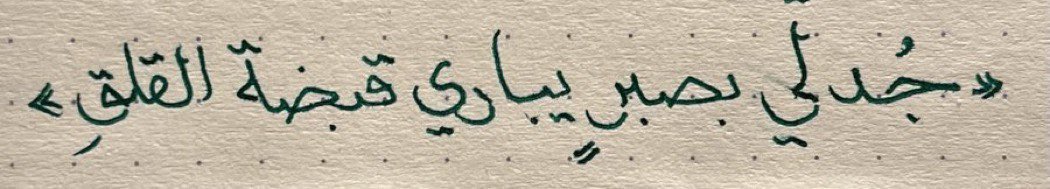 «جُد لي بصبرٍ يباري قبضة القلقِ»